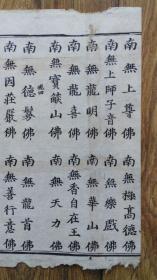 南無上尊佛 南無極高德佛
南無上師子音佛 南無樂戲佛
南無龍明佛 南無華山佛
南無龍喜佛 南無香自在王佛
南無寶燄山佛 南無天力佛
南無德鬘佛 南無龍首佛
南無因莊嚴佛 南無善行意佛